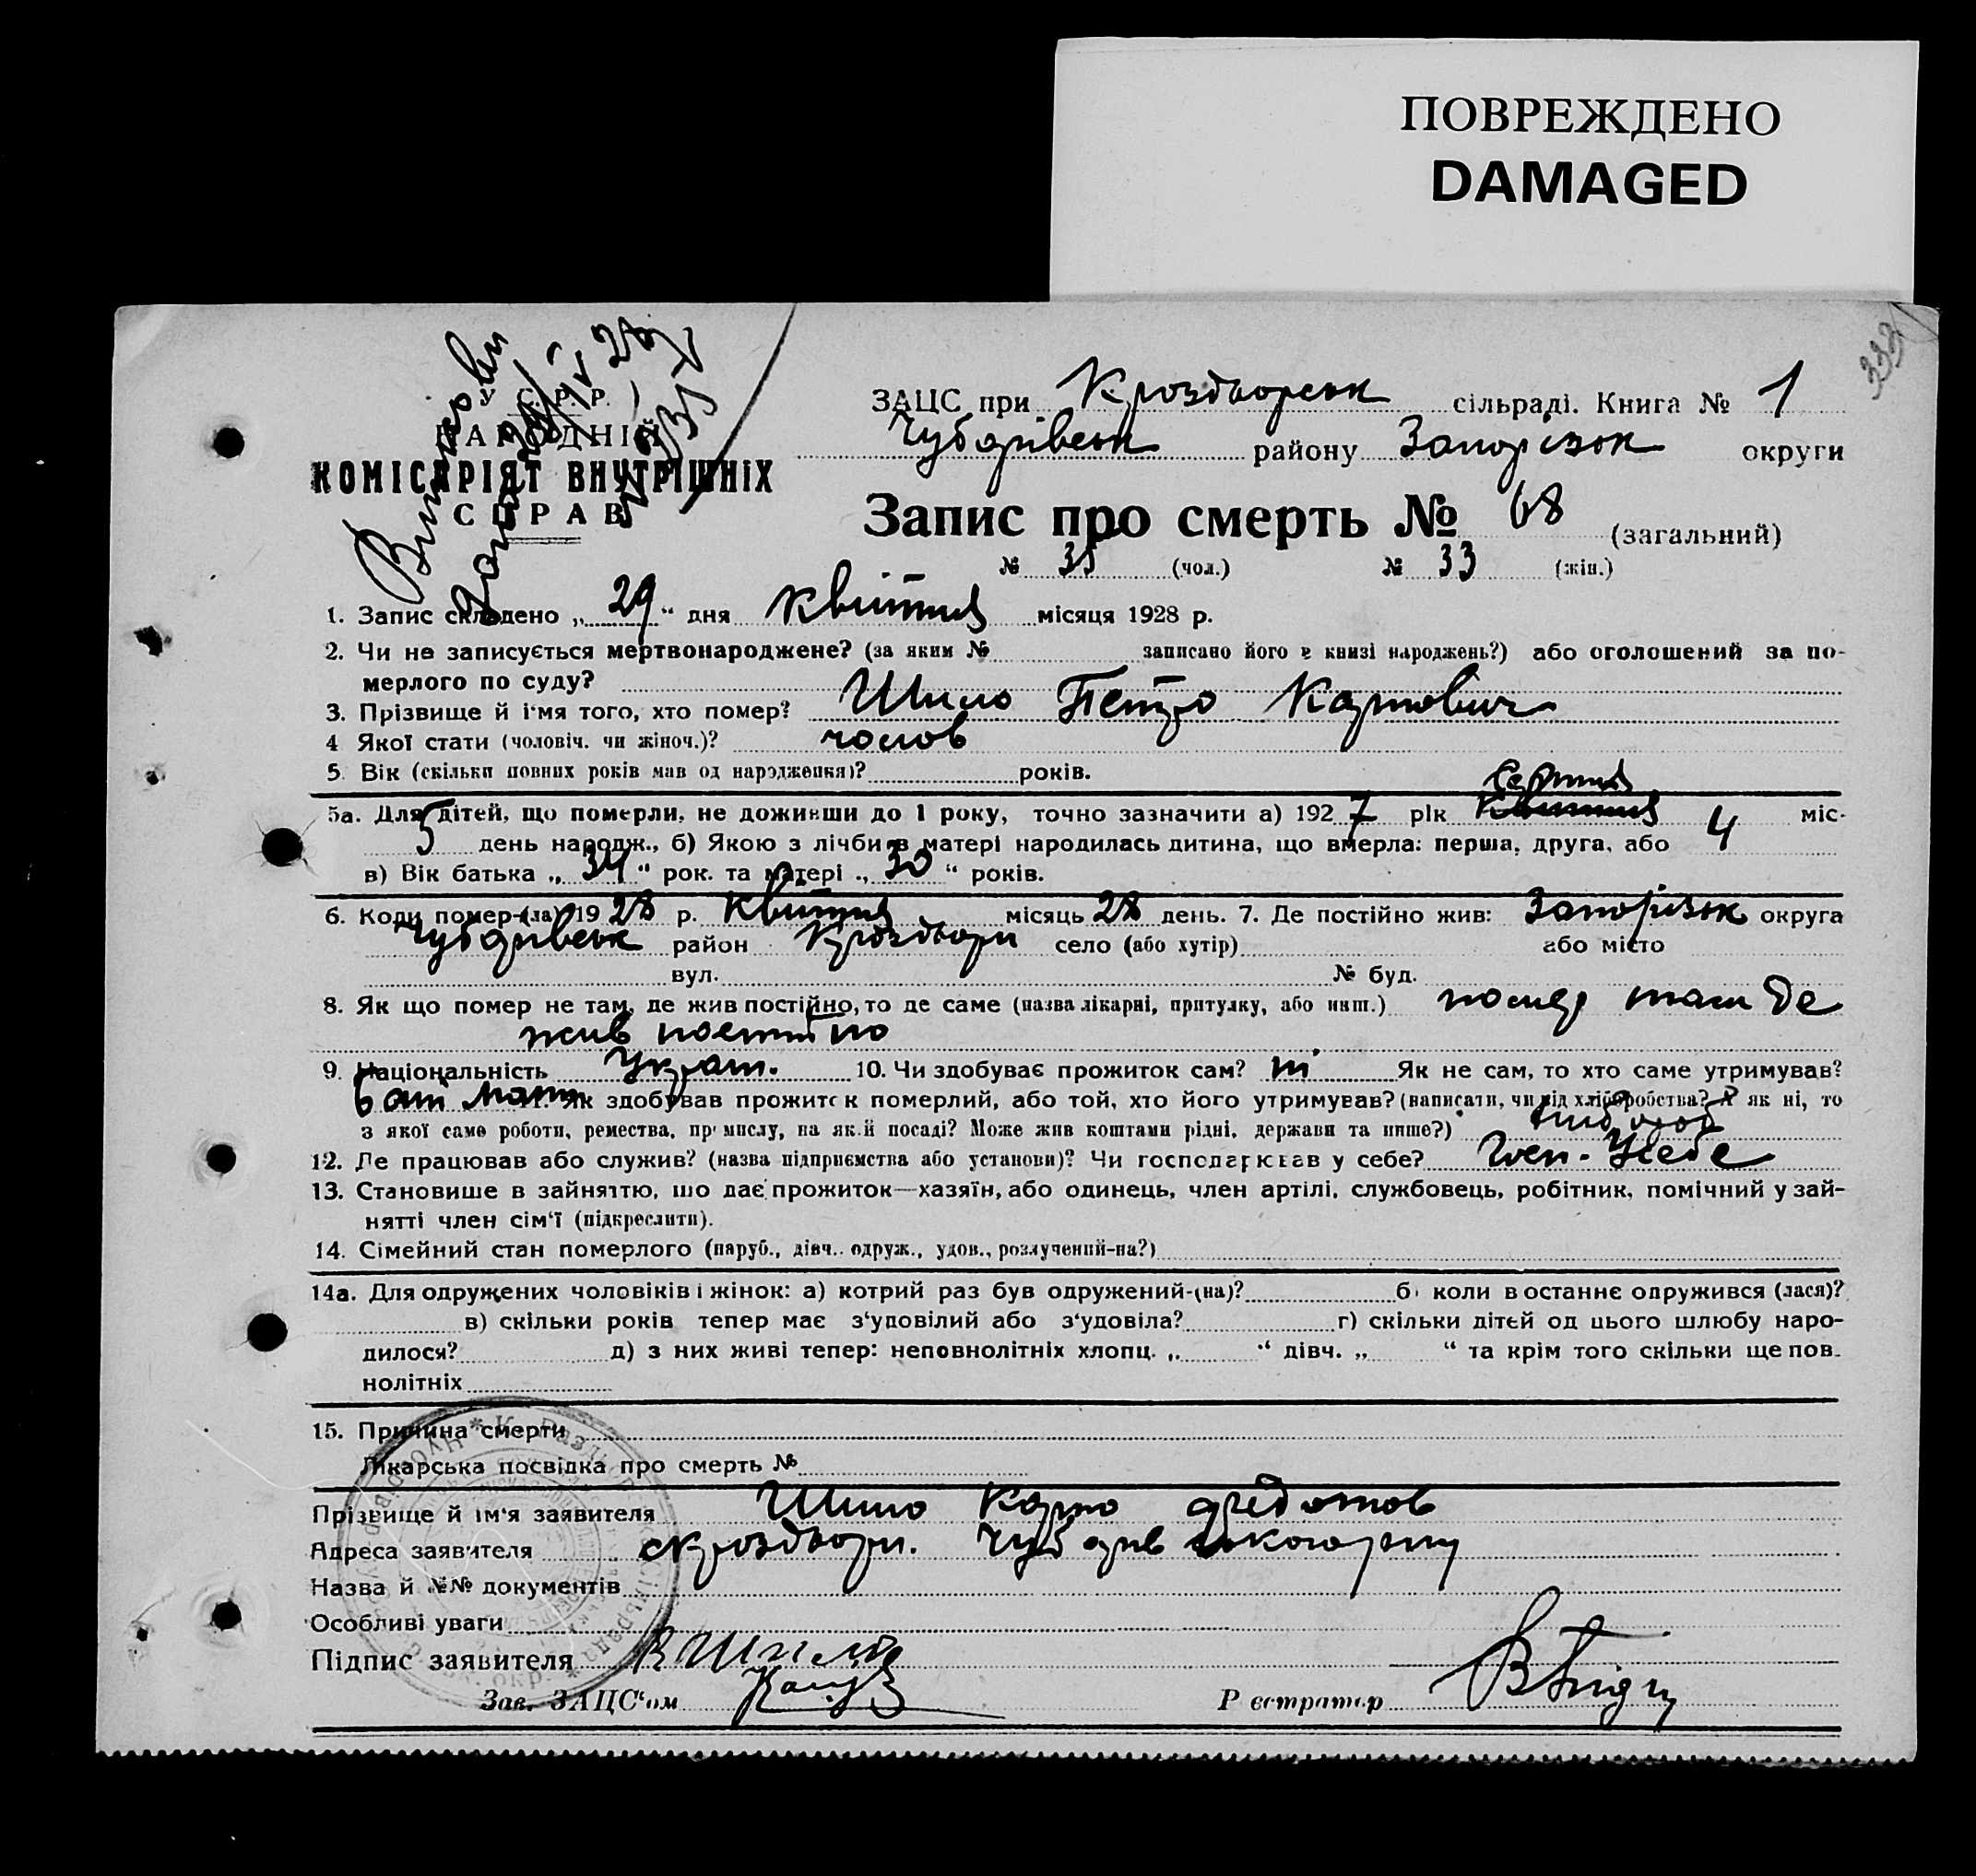 ПОВРЕЖДЕНО
DAMAGED
333
У С. Р. Р.
НАРОДНІЙ
КОМІСАРІЯТ ВНУТРІШНІХ
СПРАВ
ЗАЦС при Кроздворськ сільраді. Книга № 1
Чубарівськ району Запорізьк округи
Запис про смерть № 68 (загальний)
№ 35 (чол.) № 33 (жін.)
1. Запис складено „ 29 “ дня квітня місяця 1928 р.
2. Чи не записується мертвонароджене? (за яким № записано його в книзі народжень?) або оголошений за по-
мерлого по суду?
3. Прізвище й ім'я того, хто помер? Шило Петро Карпович
4 Якої стати (чоловіч. чи жіноч.)? чолов
5. Вік (скільки повних років мав од народження)? років.
Серпня
5а. Для дітей, що померли, не доживши до 1 року, точно зазначити а) 1927 рік Квітня 4 міс-
5 день народж., б) Якою з лічби в матері народилась дитина, що вмерла: перша, друга, або 4
в) Вік батька „ 34 “ рок. та матері „ 30 “ років.
6. Коли помер-(ла) 1928 р. Квітня місяць 28 день. 7. Де постійно жив: Запорізьк округа
Чубарівськ район Кроздвори село (або хутір) або місто
вул. № буд.
8. Як що помер не там, де жив постійно, то де саме (назва лікарні, притулку, або инш.) помер там де
жив постійно
9. Національність Украт. 10. Чи здобуває прожиток сам? ні Як не сам, то хто саме утримував?
бат мати 11. Як здобував прожиток померлий, або той, хто його утримував? (написати, чи від хліборобства? А як ні, то
з якої саме роботи, ремества, промислу, на якій посаді? Може жив коштами рідні, держави та инше?) хлібороб
12. Де працював або служив? (назва підприємства або установи)? Чи господарював у себе? Гось. Усебе
13. Становище в зайняттю, що дає прожиток—хазяїн, або одинець, член артілі, службовець, робітник, помічний у зай-
нятті член сім'ї (підкреслити).
14. Сімейний стан померлого (паруб., дівч.. одруж., удов., розлучений-на?)
14а. Для одружених чоловіків і жінок: а) котрий раз був одружений-(на)? б) коли в останнє одружився (лася)?
в) скільки років тепер має з'удовілий або з'удовіла? г) скільки дітей од цього шлюбу наро-
дилося? д) з них живі тепер: неповнолітніх хлопц. „ “ дівч. „ “ та крім того скільки ще пов-
нолітніх
15. Причина смерти
Лікарська посвідка про смерть №
Прізвище й ім'я заявителя Шило Карпо Федотов
Адреса заявителя с Кроздвори. Чубарівського рну
Назва й №№ документів
Особливі уваги
Підпис заявителя К Шило
Зав. ЗАЦС'ом
Реєстратор